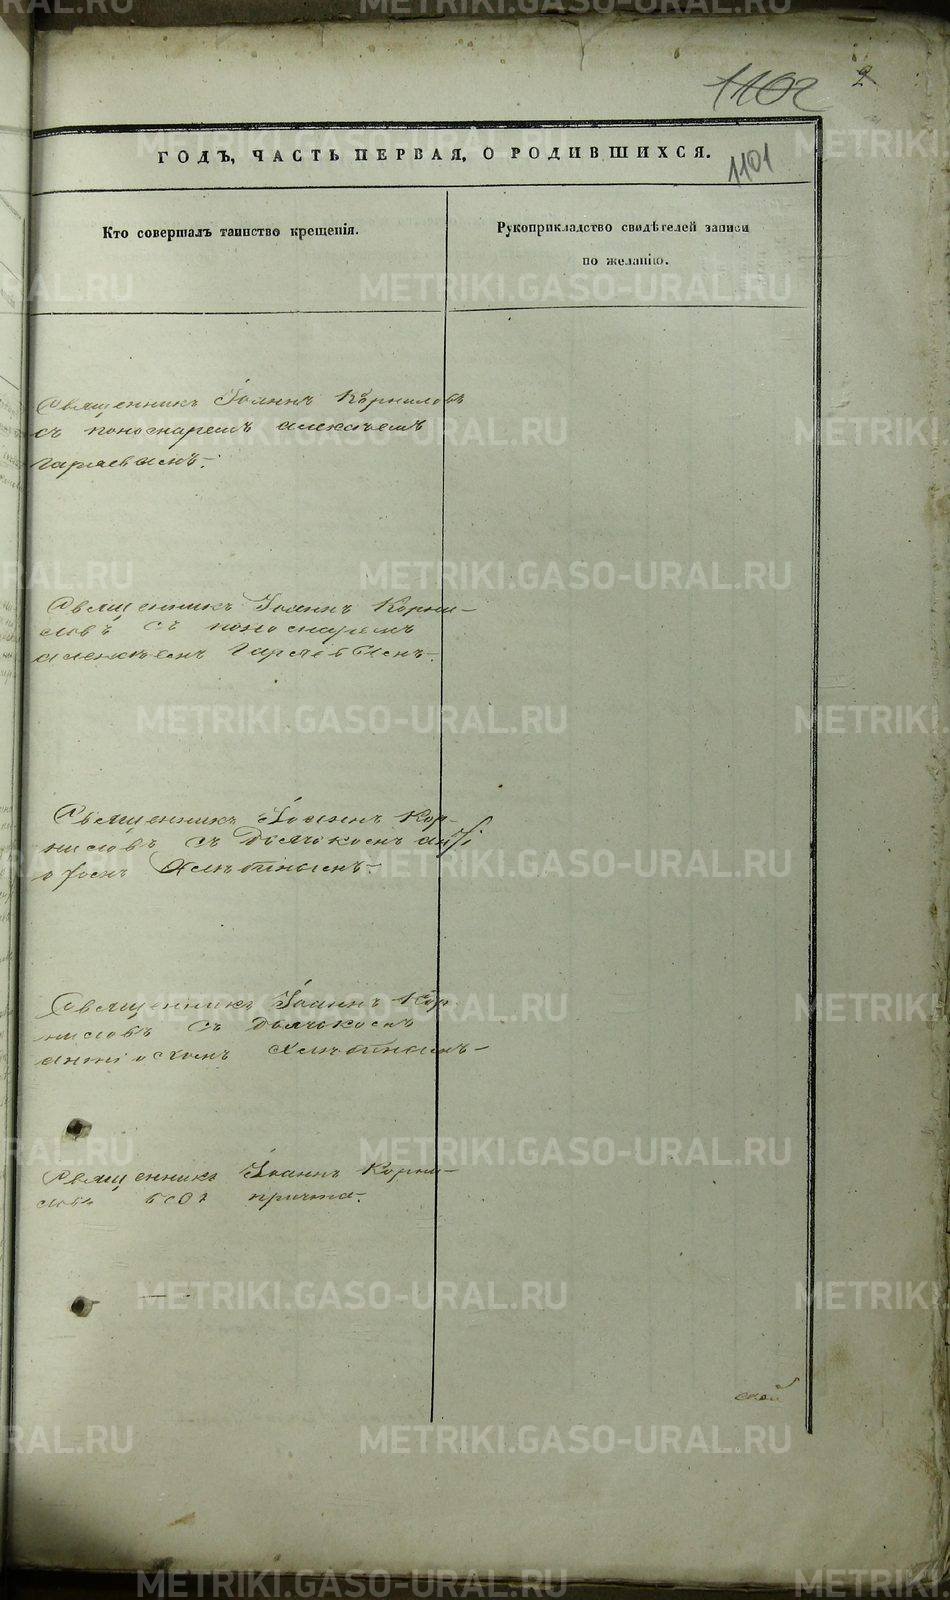 1102 2
ГОДЪ, ЧАСТЬ ПЕРВАЯ, О РОДИВШИХСЯ.
1101
Кто совершалъ таинство крещенія.
Рукоприкладство свидѣтелей записи
по желанію.
Священникъ Іоаннъ Корниловъ
съ пономаремъ алексѣемъ
Гаряевымъ.
Священникъ Іоаннъ Корни-
ловъ съ пономаремъ
алексѣемъ Гаряевымъ.
Священникъ Іоаннъ Кор-
ниловъ съ Дьячкомъ анті
охомъ
Священникъ Іоаннъ Кор-
ниловъ съ Дьячкомъ
антіохомъ
Священникъ Іоаннъ Корни-
ловъ безъ причта.
ской
METRIKI.GASO-URAL.RU